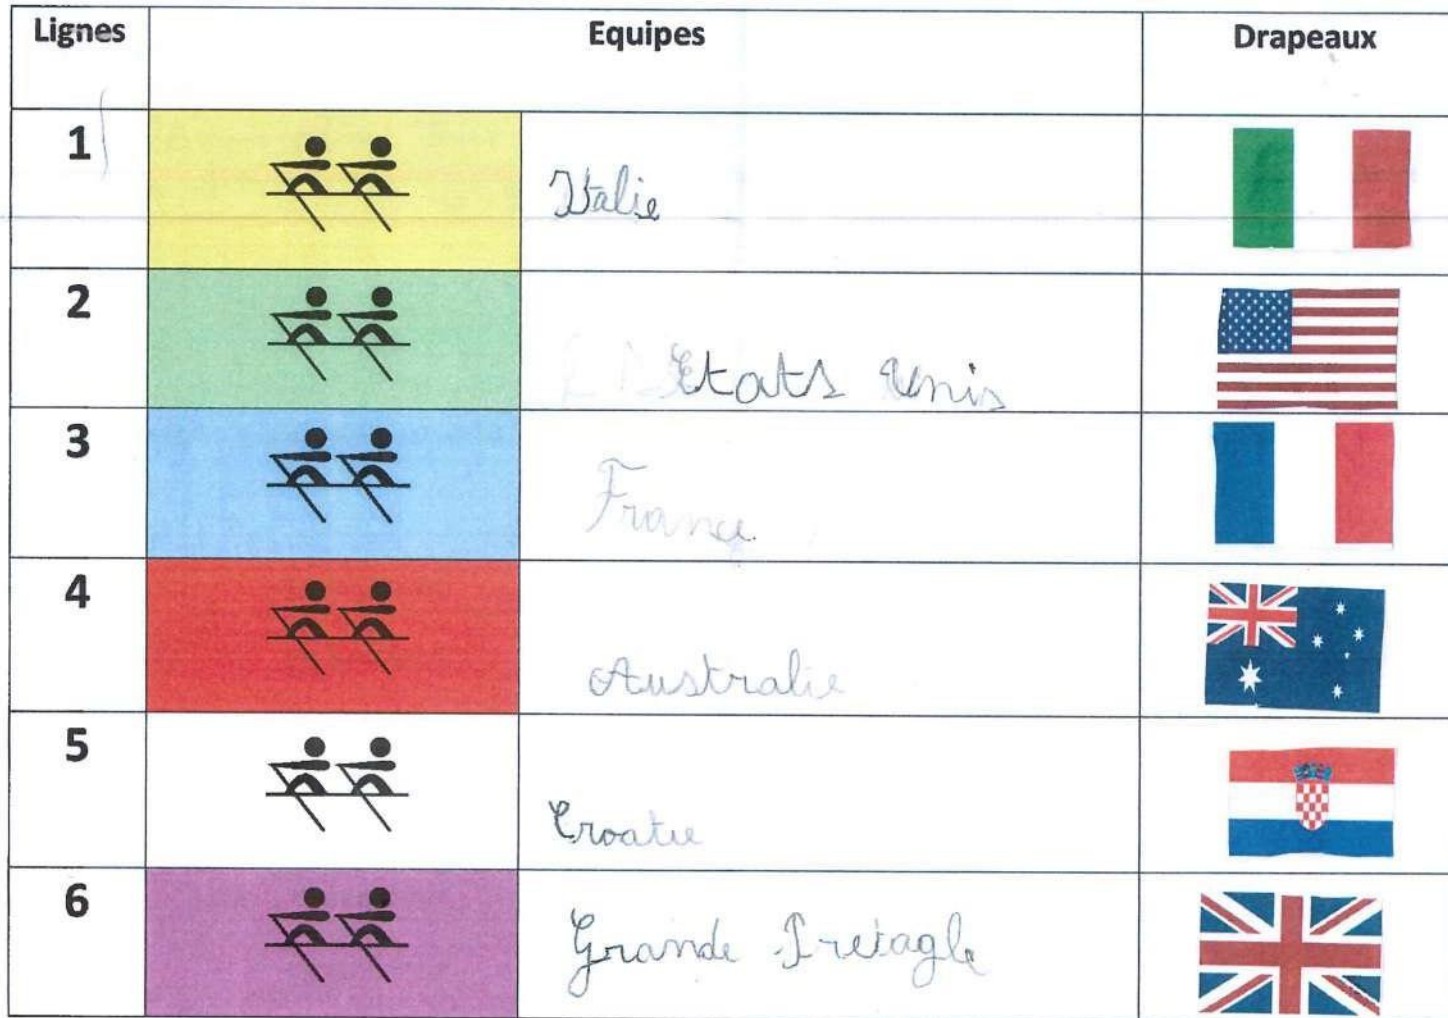 Lignes Equipes Drapeaux
1 Italie
2 Etats Unis
3 France
4 Australie
5 Croatie
6 Grande Pretagle